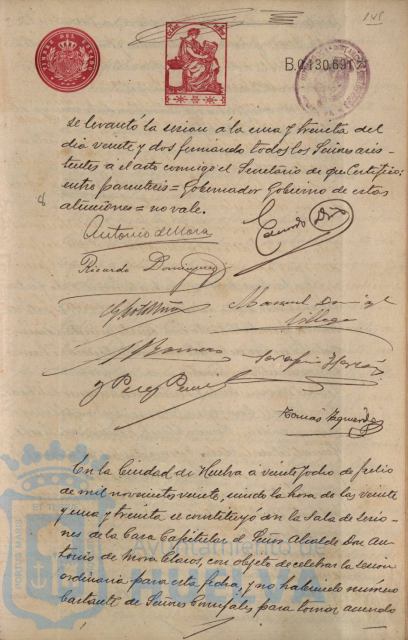 141
TIMBRE DEL ESTADO
B.0.130.691
se levantó la sesion á la una y treinta del
dia veinte y dos firmando todos los Señores asis-
tentes á el acto conmigo el Secretario de que Certifico:
entre parentesis = Gobernador Gobierno de estas
atenciones = no vale.
Antonio de Mora
Ricardo Dominguez
Manuel Domínguez
Villega
J Romero
Serafin
J Perez
Tomas Izquierdo
En la Ciudad de Huelva á veinte y ocho de Julio
de mil novecientos veinte, siendo la hora de las veinte
y una y treinta se constituyó en la Sala de sesio-
nes de la Casa Capitular el Señor Alcalde Don An-
tonio de Mora Claros, con objeto de celebrar la sesion
ordinaria para esta fecha, y no habiendo número
bastante de Señores Concejales para tomar acuerdo
Ayuntamiento de
HUELVA
PORTUS MARIS